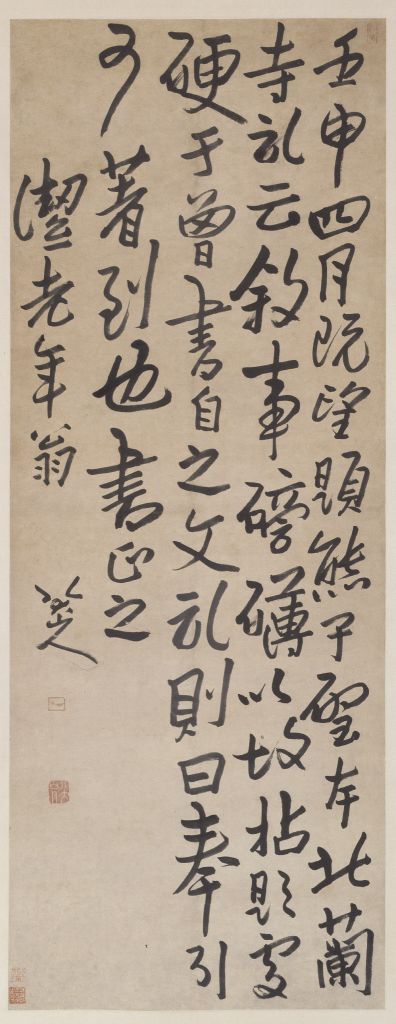 壬申四月既望題熊子聖本北蘭
寺云敘事磅礴以故拈題處
硬于曾書自之文則曰奉引
可著到也書正之
潔老年翁
八大山人